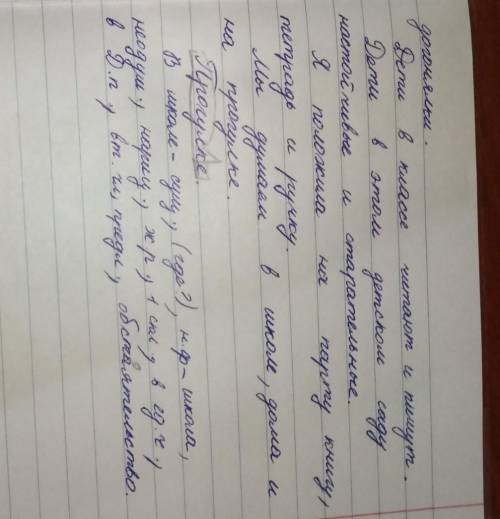 догонялки.
Дети в классе читают и пишут.
Дети в этом детском саду
настойчивые и старательные.
Я положила на парту книгу,
тетрадь и ручку.
Мы думаем в школе, дома и
на прогулке.
Прогулке
В школе - сущ, (где?), н.ф - школа,
неодуш, нариц, ж.р, 1 скл, в ед.ч,
в Д.п, вт. чл. предл, обстоятельство.